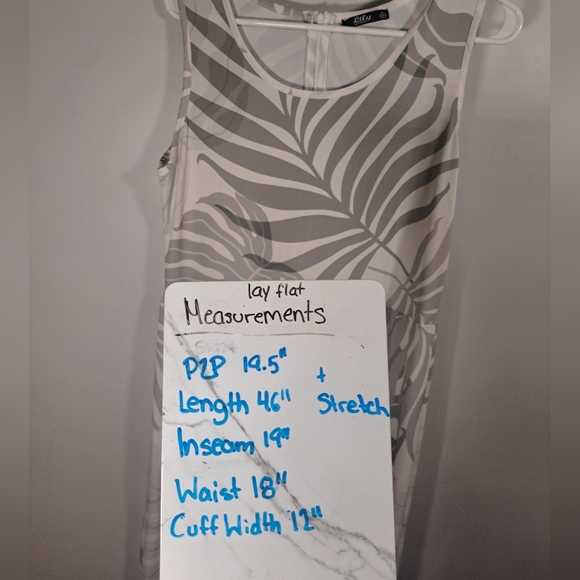 Lily
lay flat
Measurements
P2P 19.5"
+
Length 46" Stretch
Inseam 19"
Waist 18"
Cuff Width 12"